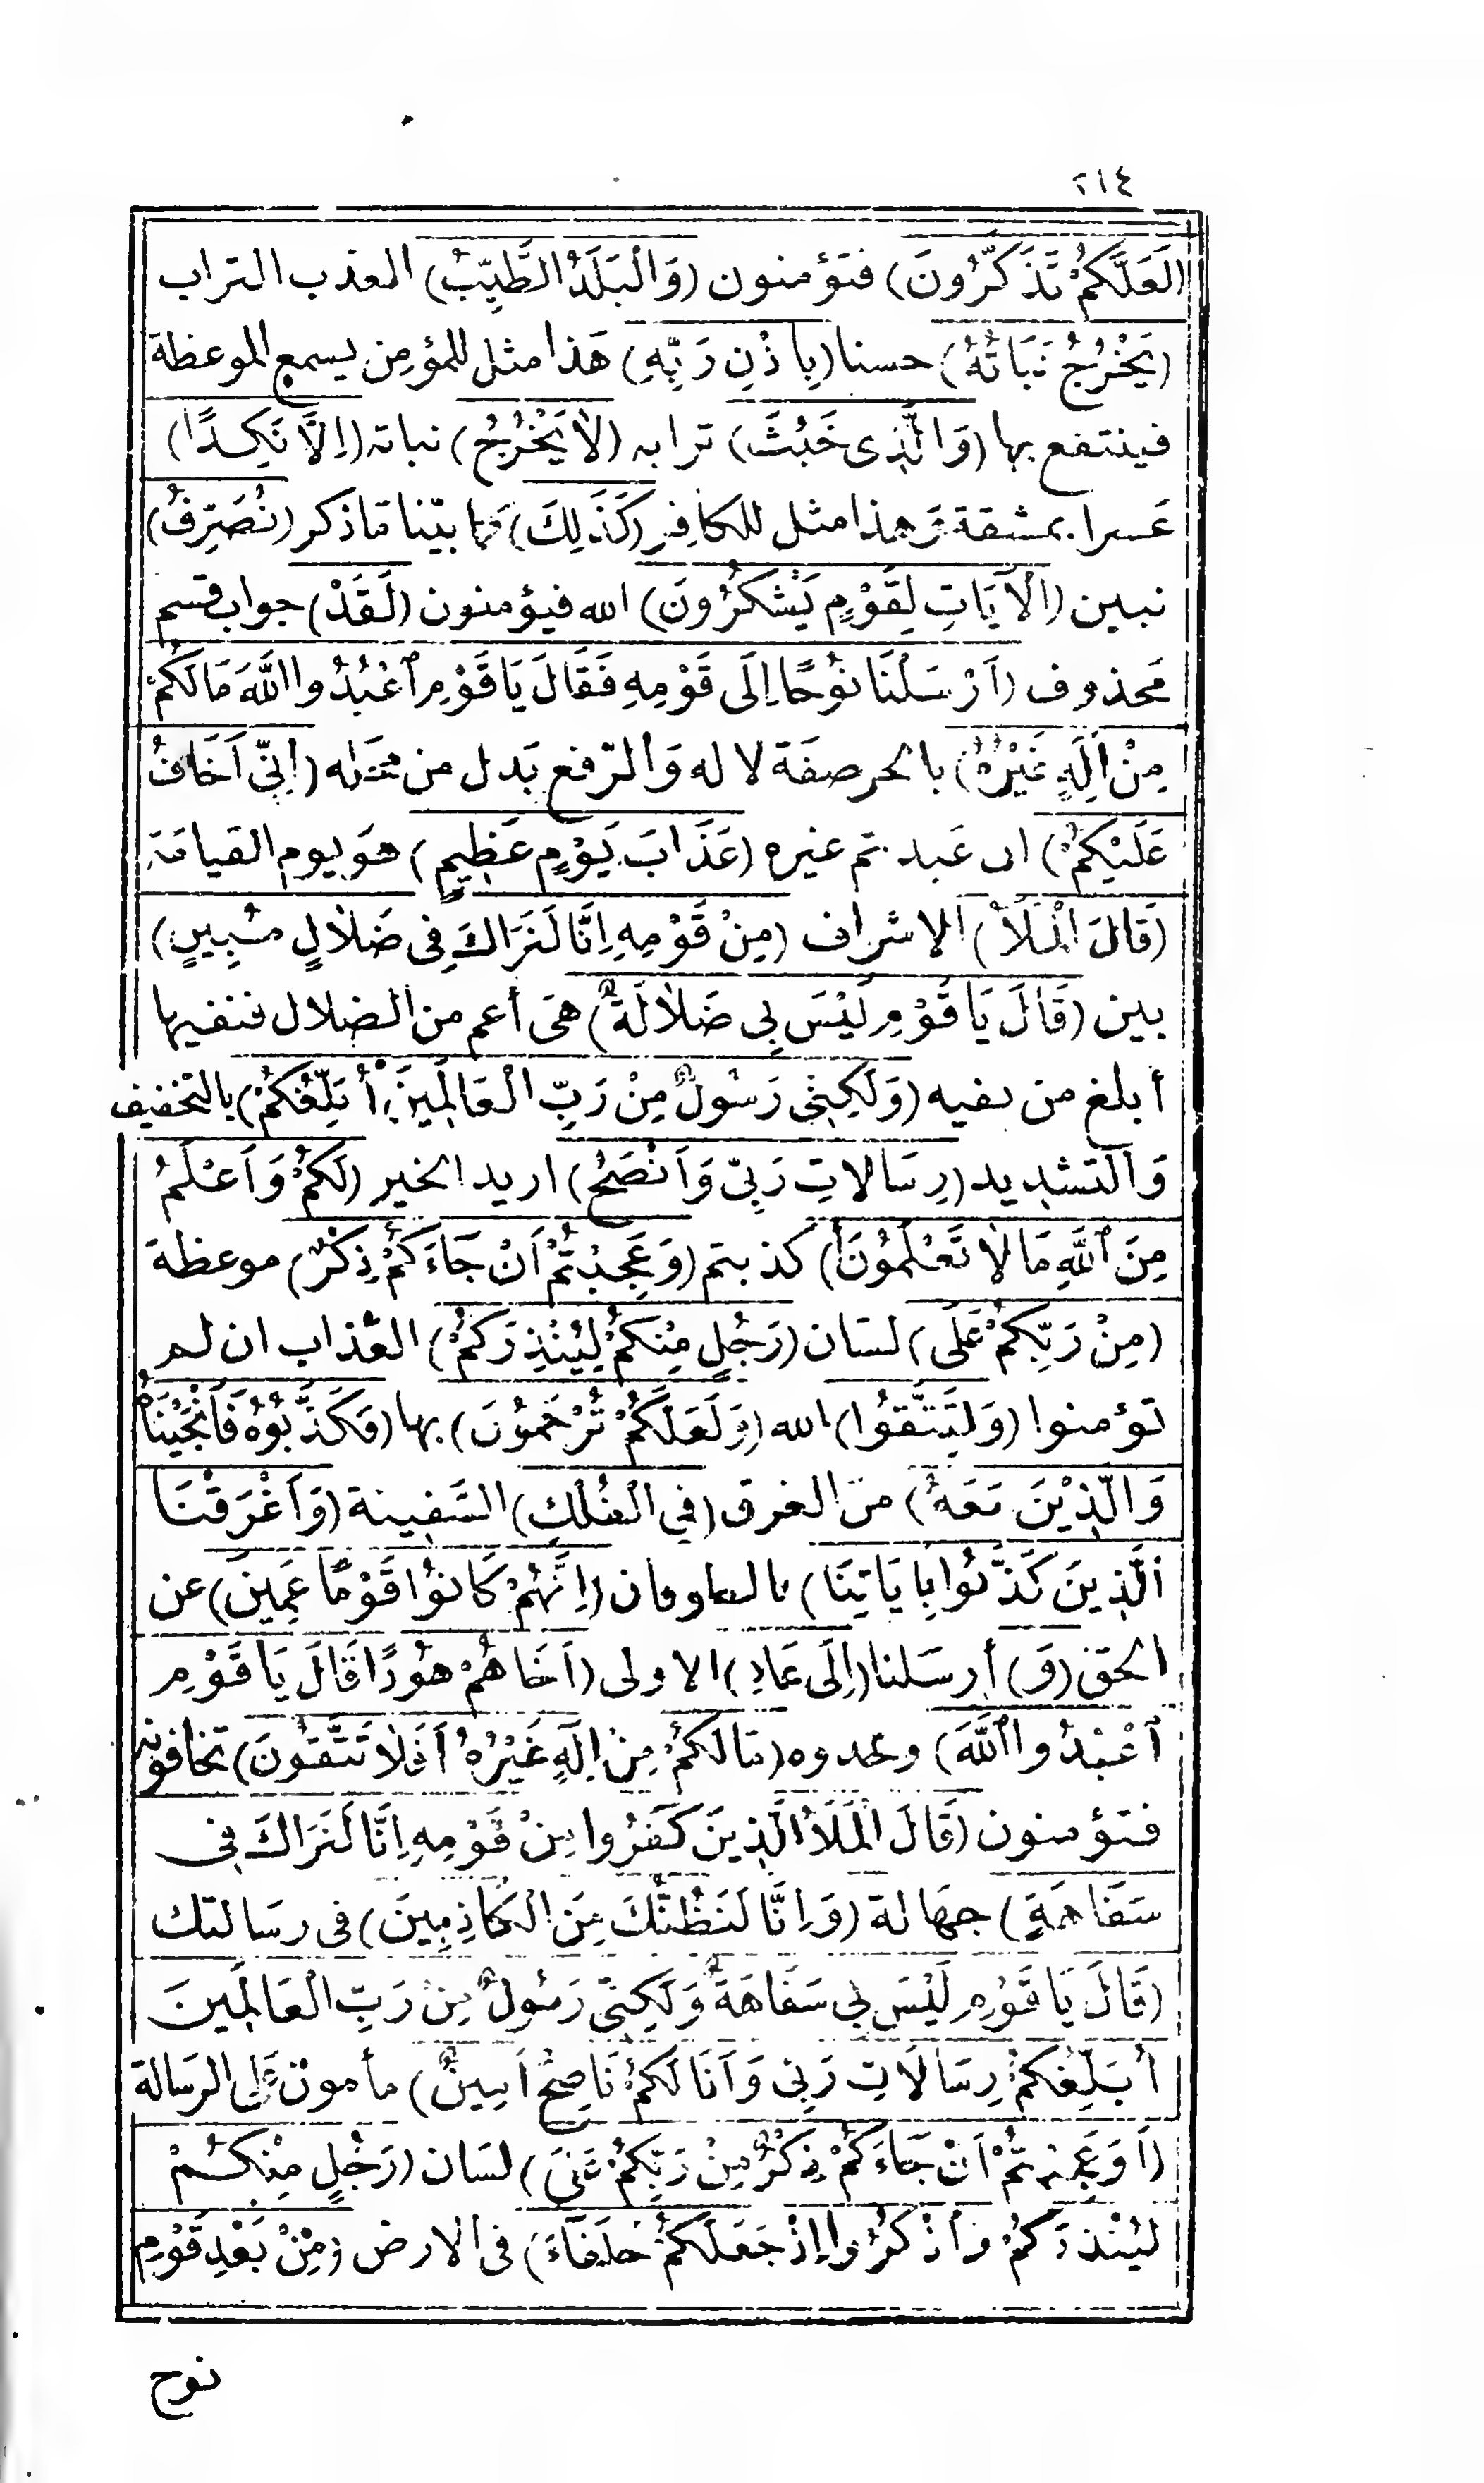 ٢١٤
(لَعَلَّكُمْ تَذَكَّرُونَ) فتؤمنون (وَالْبَلَدُ الطَّيِّبُ) العذب التراب
(يَخْرُجُ نَبَاتُهُ) حسنا (بِاِذْنِ رَبِّهِ) هَذا مثل للمؤمِن يسمع الموعظة
فينتفع بها (وَالَّذِى خَبُثَ) ترابه (لاٰ يَخْرُجُ) نباته (اِلاَّ نَكِدًا)
عَسرا بمشقة وَهذا مثل للكافِر (كَذَلِكَ) كما بيّنا مَا ذكر (نُصَرِّفُ)
نبين (الْآيَاتِ لِقَوْمٍ يَشْكُرُونَ) الله فيؤمنون (لَقَدْ) جواب قسم
مَحذوف (اَرْسَلْنَا نُوْحًا اِلَى قَوْمِهِ فَقَالَ يَا قَوْمِ اَعْبُدُوا اللَّهَ مَا لَكُمْ
مِنْ اِلَهٍ غَيْرُهُ) بالجر صفَة لاله وَالرّفع بَدل من محَله (اِنِّى اَخَافُ
عَلَيْكُمْ) ان عَبدتم غيره (عَذَابَ يَوْمٍ عَظِيمٍ) هوَ يوم القيامَة
(قَالَ الْمَلَأُ) الاشراف (مِنْ قَوْمِهِ اِنَّا لَنَرَاكَ فِى ضَلاٰلٍ مُبِينٍ)
بين (قَالَ يَا قَوْمِ لَيْسَ بِى ضَلاٰلَةٌ) هىَ أعم من الضلال فنفيها
أبلغ من نفيه (وَلَكِنِّى رَسُولٌ مِنْ رَبِّ الْعَالَمِينَ أُبَلِّغُكُمْ) بالتخفيف
وَالتشديد (رِسَالاتِ رَبِّى وَاَنْصَحُ) اريد الخير (لَكُمْ وَاَعْلَمُ
مِنَ اللَّهِ مَا لاٰ تَعْلَمُونَ أَ) كذبتم (وَعَجِبْتُمْ اَنْ جَاءَكُمْ ذِكْرٌ) موعظة
(مِنْ رَبِّكُمْ عَلَى) لسَان (رَجُلٍ مِنْكُمْ لِيُنْذِرَكُمْ) العَذاب ان لم
تؤمنوا (وَلِتَتَّقُوا) الله (وَلَعَلَّكُمْ تُرْحَمُونَ) بها (فَكَذَّبُوْهُ فَاَنْجَيْنَاهُ
وَالَّذِيْنَ مَعَهُ) منَ الغرق (فِي الْفُلْكِ) السَّفِينة (وَاَغْرَقْنَا
الَّذِينَ كَذَّبُوا بِاٰيَاتِنَا) بالطوفان (اِنَّهُمْ كَانُوْا قَوْمًا عَمِينَ) عن
الحق (وَ) أرسَلنا (اِلَى عَادٍ) الاولى (اَخَاهُمْ هُودًا قَالَ يَا قَوْمِ
اَعْبُدُوا اللَّهَ) وحدوه (مَا لَكُمْ مِنْ اِلَهٍ غَيْرُهُ أَفَلاٰ تَتَّقُونَ) تخافونه
فتؤمنون (قَالَ الْمَلَأُ الَّذِينَ كَفَرُوا مِنْ قَوْمِهِ اِنَّا لَنَرَاكَ فِى
سَفَاهَةٍ) جهَالة (وَاِنَّا لَنَظُنُّكَ مِنَ الْكَاذِبِينَ) فى رسَالتك
(قَالَ يَا قَوْمِ لَيْسَ بِي سَفَاهَةٌ وَلَكِنِّى رَسُولٌ مِنْ رَبِّ الْعَالَمِينَ
أُبَلِّغُكُمْ رِسَالَاتِ رَبِّى وَاَنَا لَكُمْ نَاصِحٌ اَمِينٌ) مأمون عَلى الرسَالة
(اَوَعَجِبْتُمْ اَنْ جَاءَكُمْ ذِكْرٌ مِنْ رَبِّكُمْ عَلَى) لسَان (رَجُلٍ مِنْكُمْ
لِيُنْذِرَكُمْ وَاذْكُرُوا اِذْ جَعَلَكُمْ خُلَفَاءَ) فى الارض (مِنْ بَعْدِ قَوْمِ
نوح